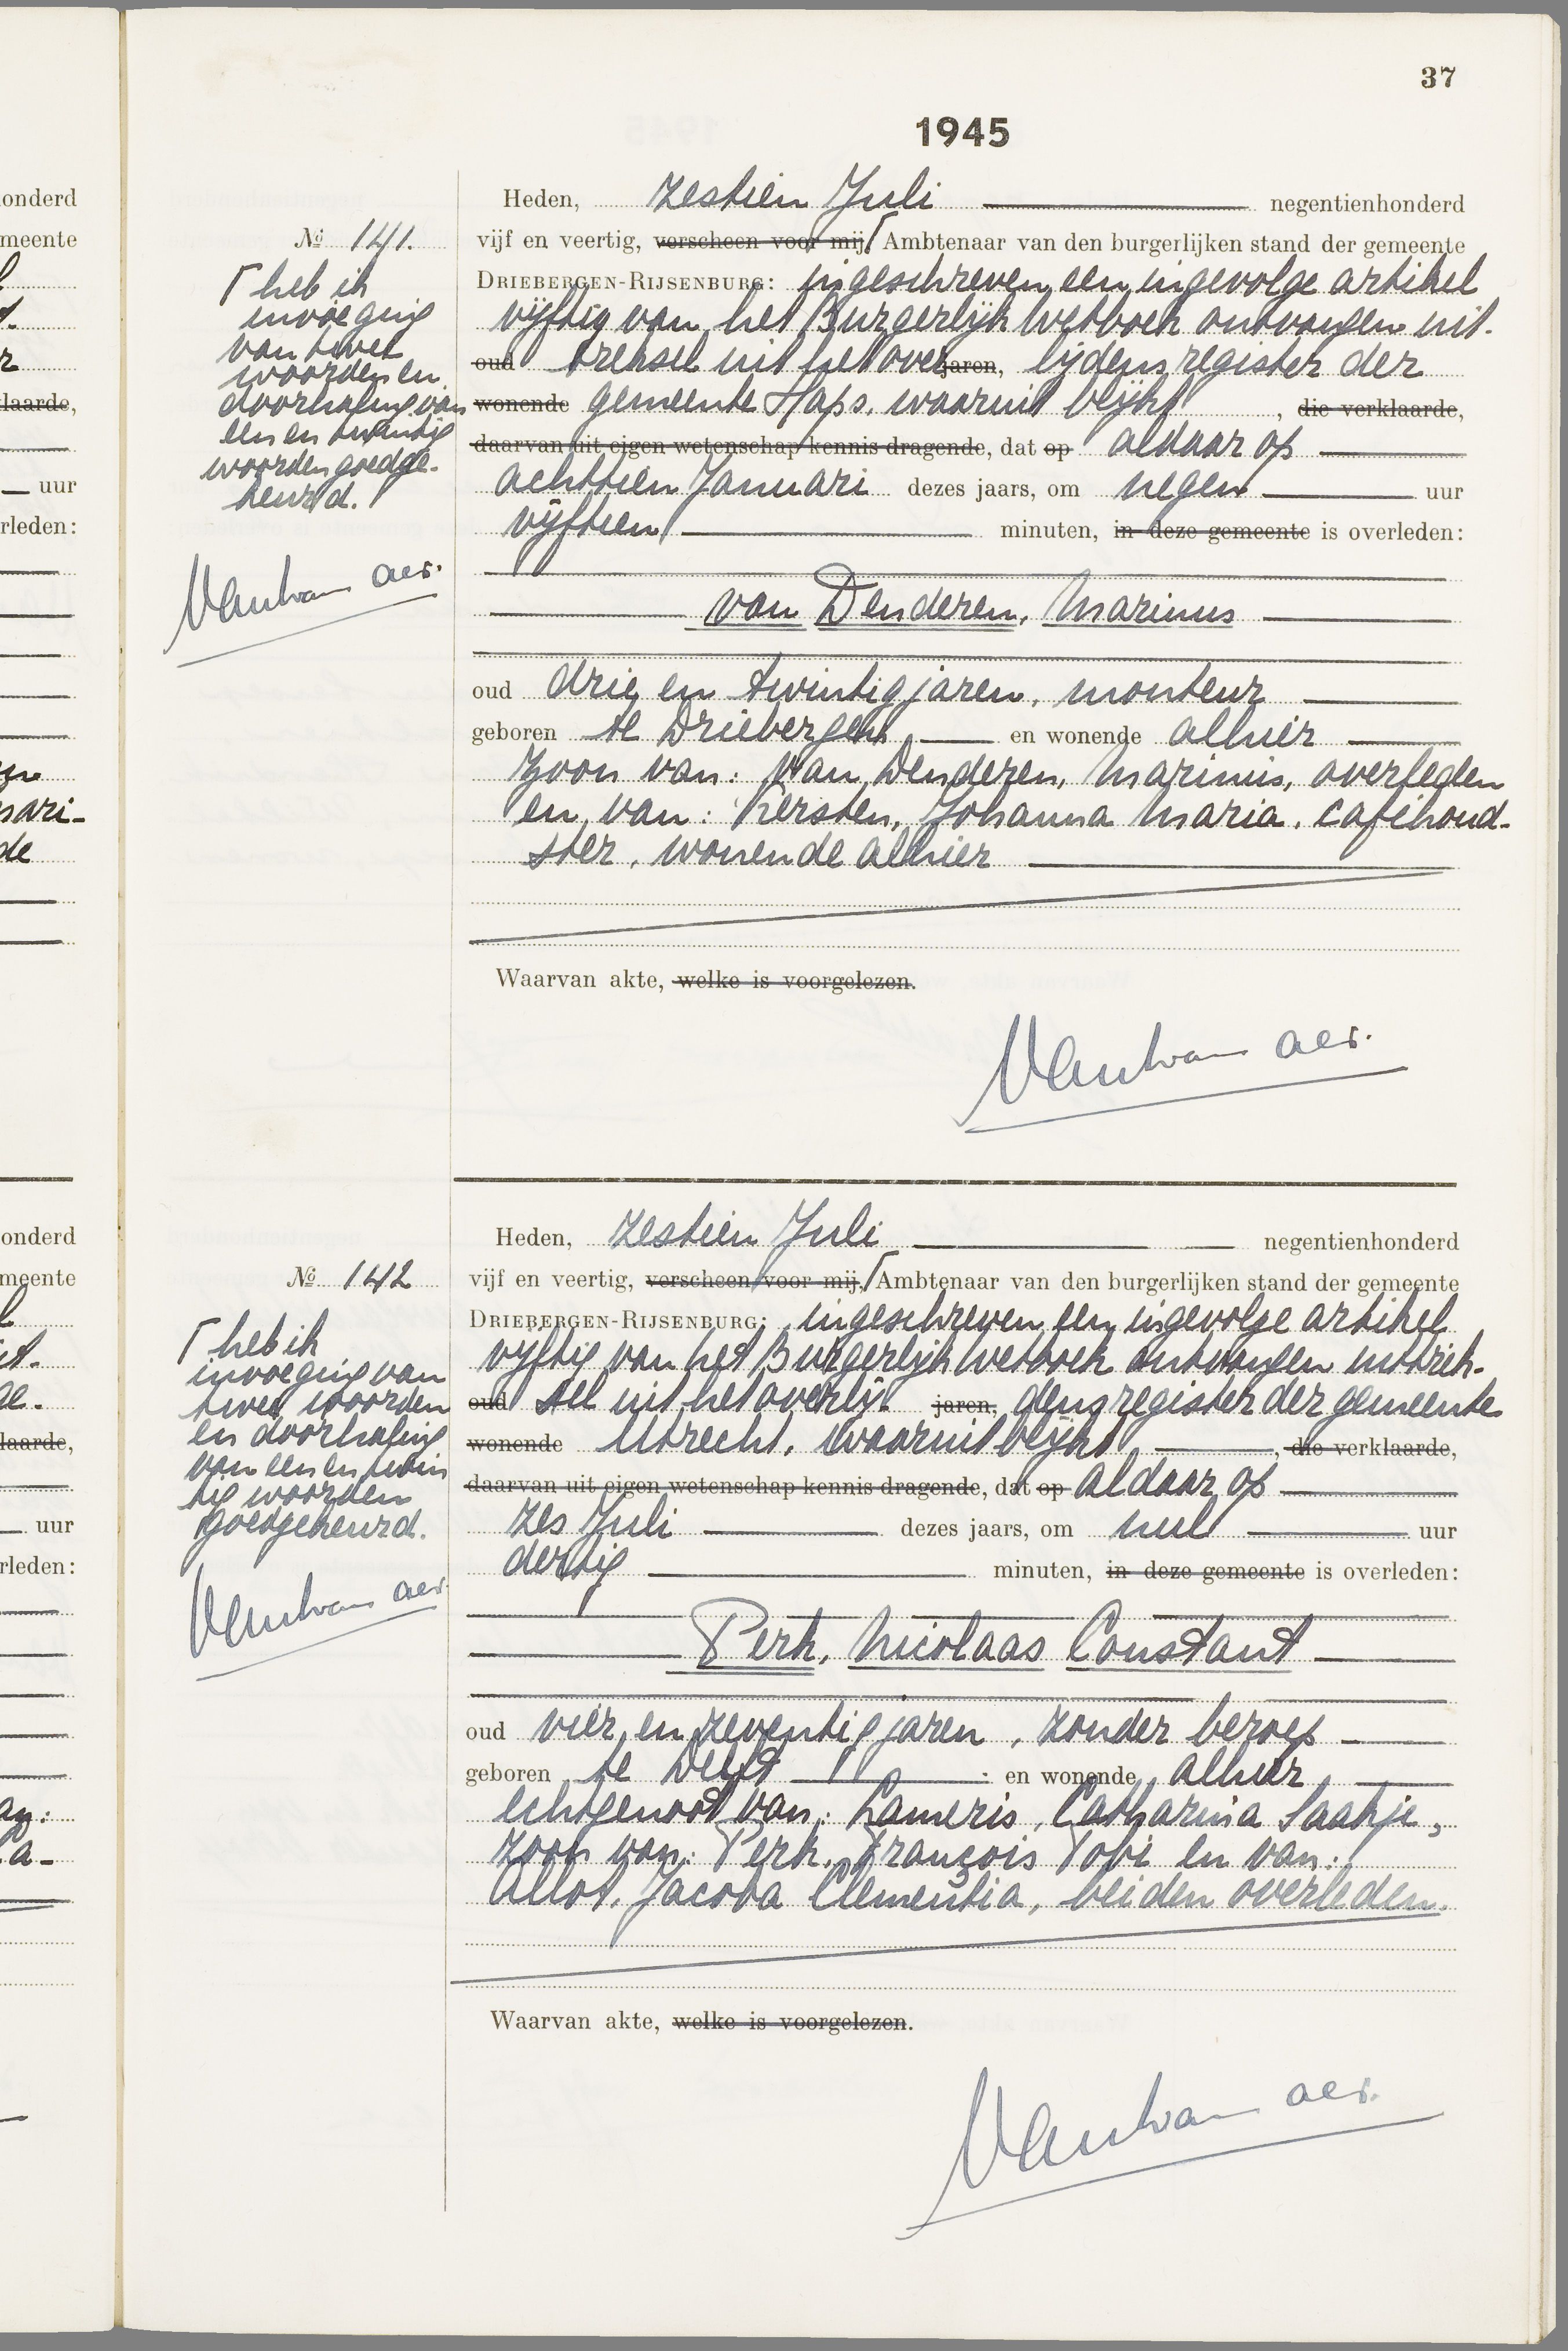 37
1945
Heden, zestien Juli negentienhonderd
No 141.
vijf en veertig, verscheen voor mij, Ambtenaar van den burgerlijken stand der gemeente
DRIEBERGEN-RIJSENBURG: ingeschreven een ingevolge artikel
vijftig van het Burgerlijk Wetboek ontvangen uit-
oud treksel uit het over jaren, lijdensregister der
wonende gemeente Haps, waaruit blijkt, die verklaarde,
daarvan uit eigen wetenschap kennis dragende, dat op aldaar op
achttien Januari dezes jaars, om negen uur
vijftien minuten, in deze gemeente is overleden:
van Denderen, Marinus
oud drie en twintig jaren, monteur
geboren te Driebergen en wonende alhier
zoon van: van Denderen, Marinus, overleden
en van: Kersten, Johanna Maria, caféhoud-
ster, wonende alhier
Waarvan akte, welke is voorgelezen.
aes.
heb ik
invoeging
van twee
woorden en
doorhaling van
een en twintig
woorden goedge-
keurd.
aes.
Heden, zestien Juli negentienhonderd
No 142
vijf en veertig, verscheen voor mij, Ambtenaar van den burgerlijken stand der gemeente
DRIEBERGEN-RIJSENBURG: ingeschreven een ingevolge artikel
vijftig van het Burgerlijk Wetboek ontvangen uittrek-
oud sel uit het overlij- jaren, densregister der gemeente
wonende Utrecht, waaruit blijkt, die verklaarde,
daarvan uit eigen wetenschap kennis dragende, dat op aldaar op
zes Juli dezes jaars, om nul uur
dertig minuten, in deze gemeente is overleden:
Perk, Nicolaas Constant
oud vier en zeventig jaren, zonder beroep
geboren te Delft en wonende alhier
echtgenoot van: Lameris, Catharina Saakje,
zoon van: Perk, François Tobi en van:
Allot, Jacoba Clementia, beiden overleden.
Waarvan akte, welke is voorgelezen.
aes.
heb ik
invoeging van
twee woorden
en doorhaling
van een en twin
tig woorden
goedgekeurd.
aes.